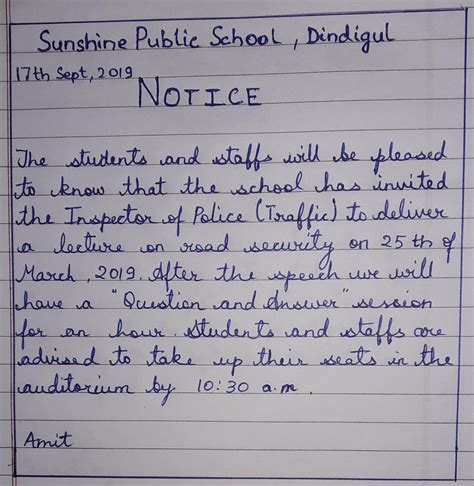 Sunshine Public School, Dindigul
17th Sept, 2019
NOTICE
The students and staffs will be pleased
to know that the school has invited
the Inspector of Police (Traffic) to deliver
a lecture on road security on 25 th of
March, 2019. After the speech we will
have a "Question and Answer" session
for an hour. Students and staffs are
advised to take up their seats in the
auditorium by 10:30 a.m.
Amit